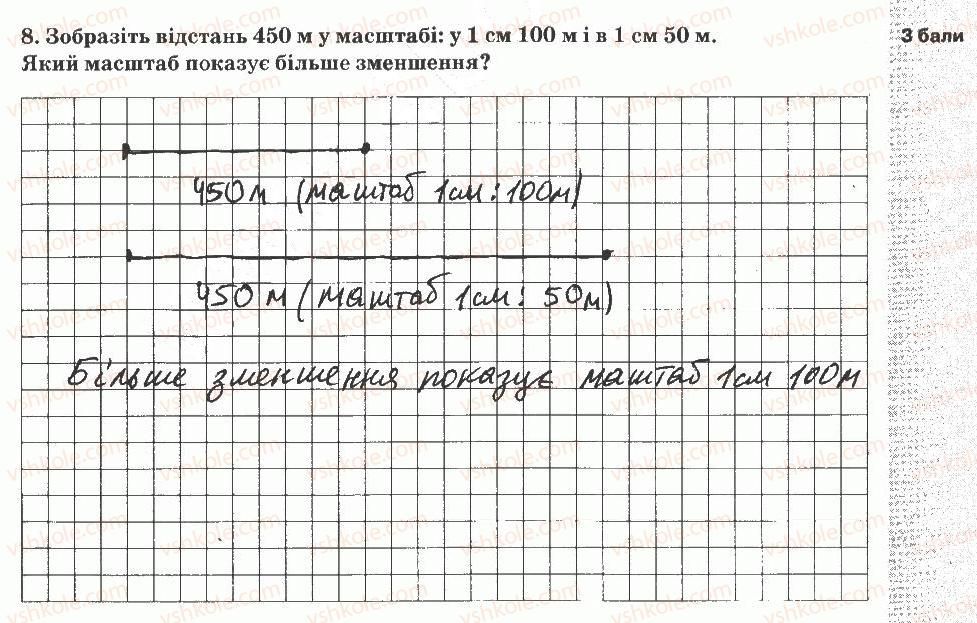 8. Зобразіть відстань 450 м у масштабі: у 1 см 100 м і в 1 см 50 м.
Який масштаб показує більше зменшення?
3 бали
450м (маштаб 1см : 100м)
450 м (маштаб 1см : 50м)
Більше зменшення показує маштаб 1см 100м
vshkole.com